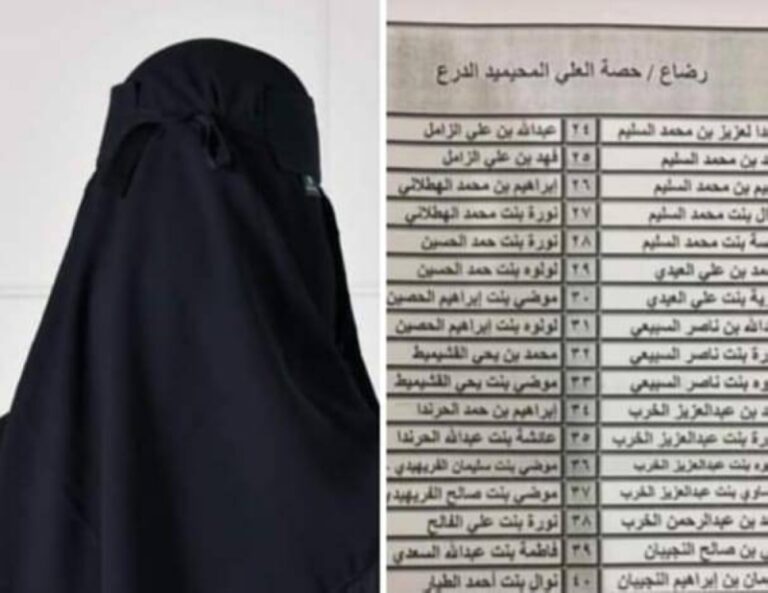 رضاع / حصة العلي المحيميد الدرع
لعزيز بن محمد السليم ٢٤ عبدالله بن علي الزامل
بن محمد السليم ٢٥ فهد بن علي الزامل
بن محمد السليم ٢٦ إبراهيم بن محمد الهطلاني
بنت محمد السليم ٢٧ نورة بنت محمد الهطلاني
بنت محمد السليم ٢٨ نورة بنت حمد الحسين
بن علي العيدي ٢٩ لولوه بنت حمد الحسين
بنت علي العيدي ٣٠ موضي بنت إبراهيم الحصين
بن ناصر السبيعي ٣١ لولوه بنت إبراهيم الحصين
بنت ناصر السبيعي ٣٢ محمد بن يحي القشيميط
بنت ناصر السبيعي ٣٣ موضي بنت يحي القشيميط
بن عبدالعزيز الخرب ٣٤ إبراهيم بن حمد الحرندا
بنت عبدالعزيز الخرب ٣٥ عائشة بنت عبدالله الحرندا
بنت عبدالعزيز الخرب ٣٦ موضي بنت سليمان الفريهيدي
بنت عبدالعزيز الخرب ٣٧ موضي بنت صالح الفريهيدي
بن عبدالرحمن الخرب ٣٨ نورة بنت علي الفالح
بن صالح النجيبان ٣٩ فاطمة بنت عبدالله السعدي
بن إبراهيم النجيبان ٤٠ نوال بنت أحمد الطيار